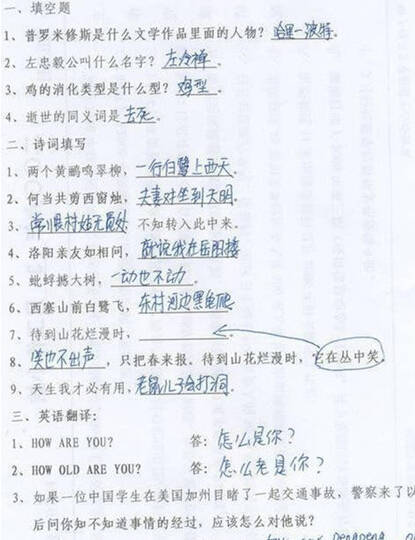 一、填空题
1、普罗米修斯是什么文学作品里面的人物？哈里-波特。
2、左忠毅公叫什么名字？左冷禅。
3、鸡的消化类型是什么型？鸡型。
4、逝世的同义词是去死。
二、诗词填写
1、两个黄鹂鸣翠柳，一行白鹭上西天。
2、何当共剪西窗烛，夫妻对坐到天明。
3、常恨村姑无觅处 不知转入此中来。
4、洛阳亲友如相问，就说我在岳阳楼
5、蚍蜉撼大树，一动也不动。
6、西塞山前白鹭飞，东村河边黑龟爬
7、待到山花烂漫时，
8、笑也不出声，只把春来报。待到山花烂漫时，它在丛中笑。
9、天生我才必有用，老鼠儿子会打洞。
三、英语翻译：
1、HOW ARE YOU? 答：怎么是你？
2、HOW OLD ARE YOU? 答：怎么老是你？
3、如果一位中国学生在美国加州目睹了一起交通事故，警察来了以
后问你知不知道事情的经过，应该怎么对他说？